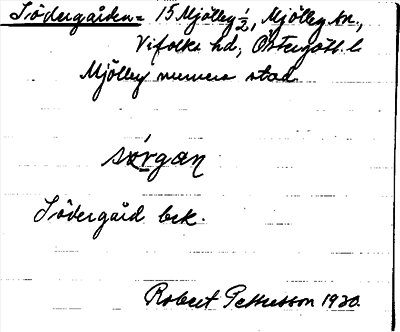 Södergården = 15 Mjölby ½, Mjölby sn.,
Vifolka hd, Östergötl. l.
Mjölby numera stad
sö́rgan
Södergård bek.
Robert Pettersson 1920.